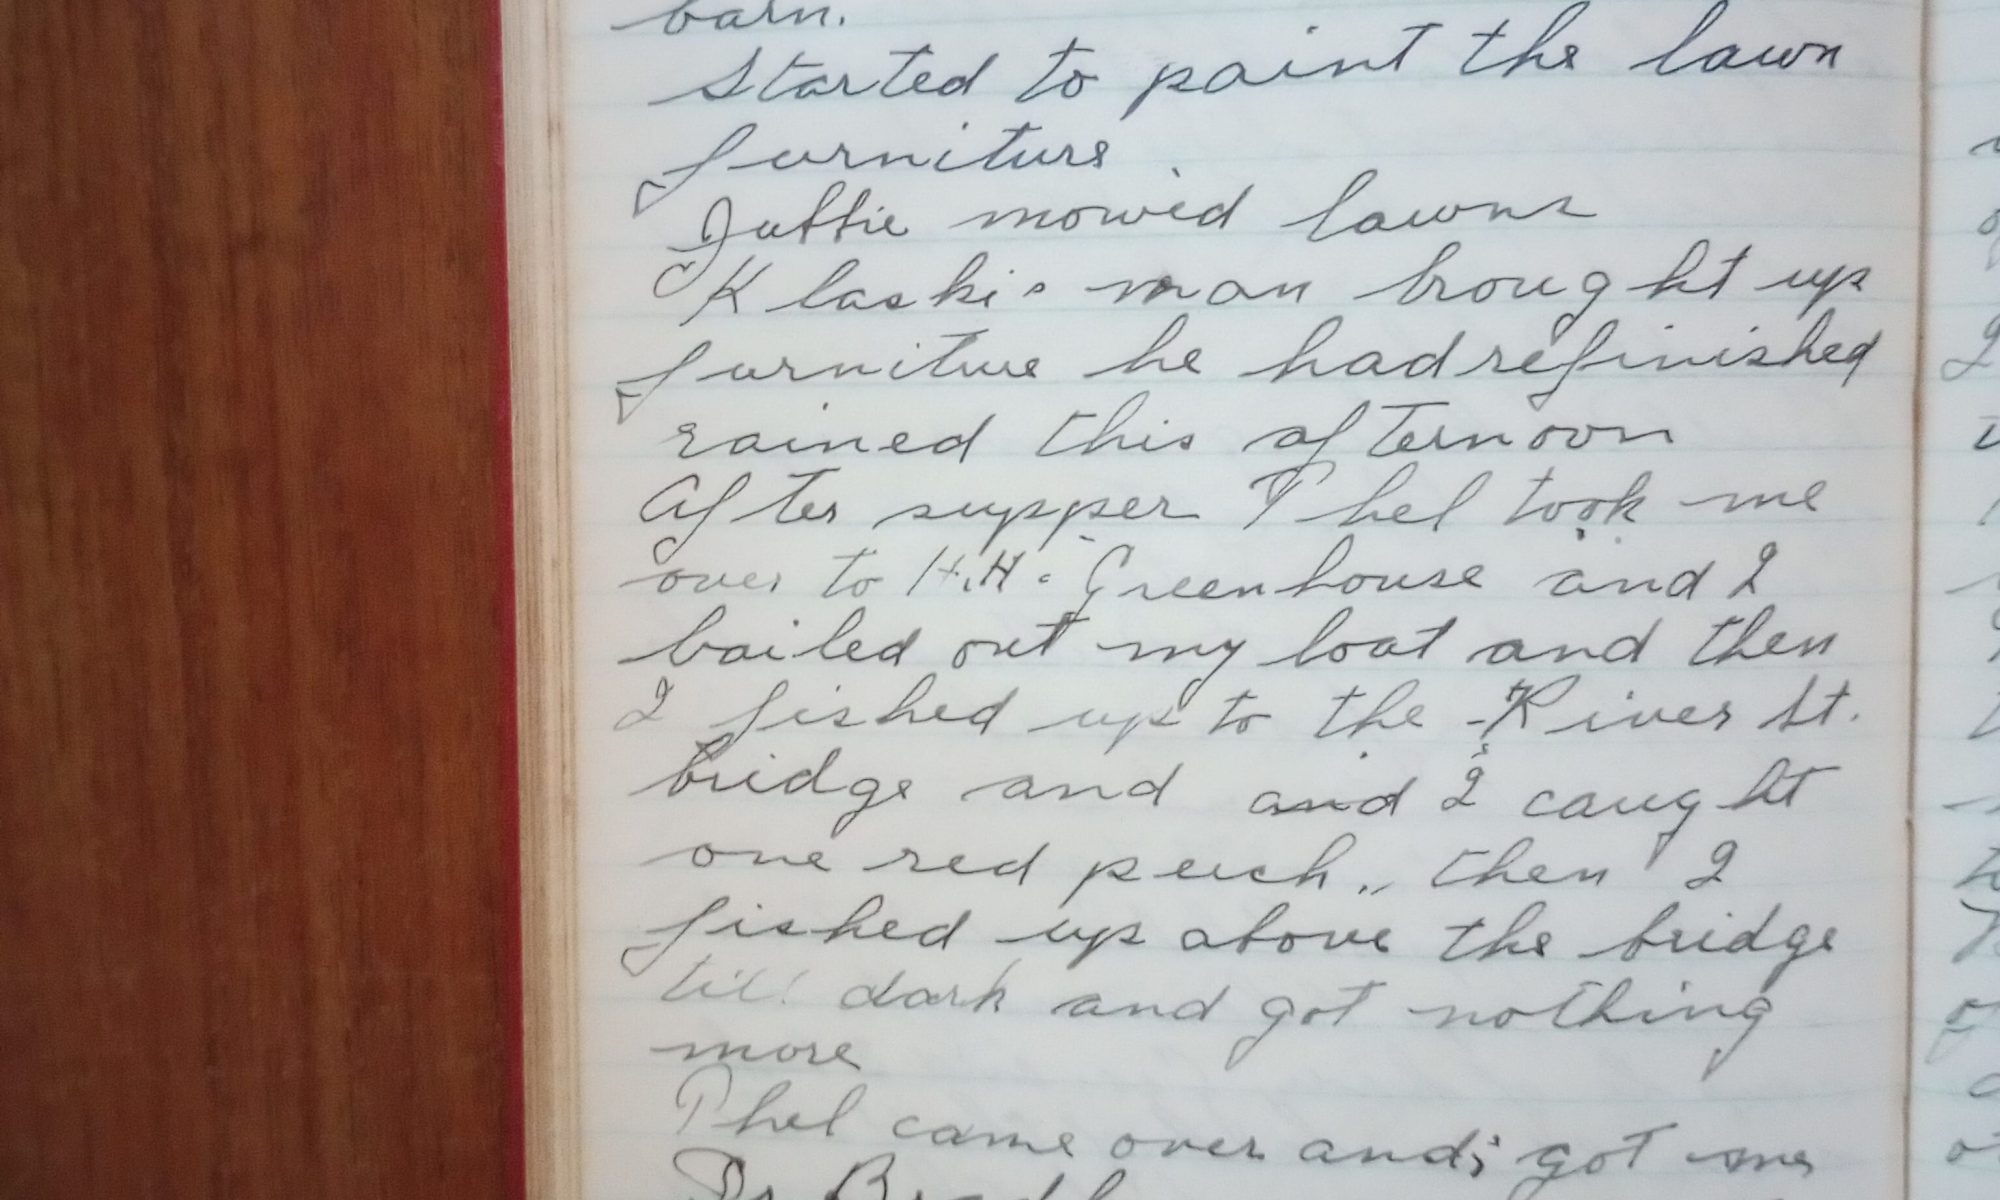 barn.
Started to paint the lawn
furniture
mowed lawns
Klaskis man brought up
furniture he had refinished
rained this afternoon
After supper Phel took me
over to H.H. Greenhouse and I
bailed out my boat and then
I fished up to the River St.
bridge and and I caught
one red perch, then I
fished up above the bridge
till dark and got nothing
more
Phel came over and got me